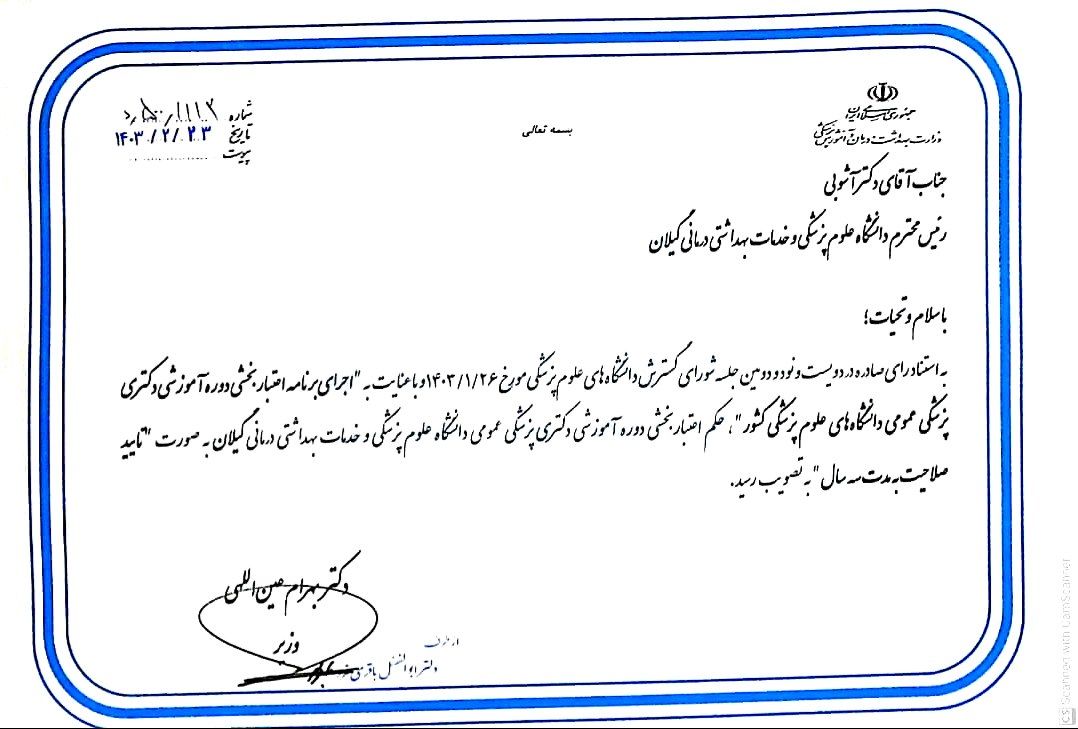 بسمه تعالی
جمهوری اسلامی ایران
وزارت بهداشت، درمان و آموزش پزشکی
شماره
تاریخ ۱۴۰۳/۲/۲۳
پیوست
جناب آقای دکتر آشوبی
رئیس محترم دانشگاه علوم پزشکی و خدمات بهداشتی درمانی گیلان
با سلام و تحیات؛
به استناد رای صادره در دویست و نود و دومین جلسه شورای گسترش دانشگاه های علوم پزشکی مورخ ۱۴۰۳/۱/۲۶ و با عنایت به "اجرای برنامه اعتبار بخشی دوره آموزشی دکتری
پزشکی عمومی دانشگاه های علوم پزشکی کشور"، حکم اعتبار بخشی دوره آموزشی دکتری پزشکی عمومی دانشگاه علوم پزشکی و خدمات بهداشتی درمانی گیلان به صورت "تایید
صلاحیت به مدت سه سال" به تصویب رسید.
دکتر بهرام عین اللهی
وزیر
از طرف
دکتر ابوالفضل باقری فرد
CS Scanned with CamScanner